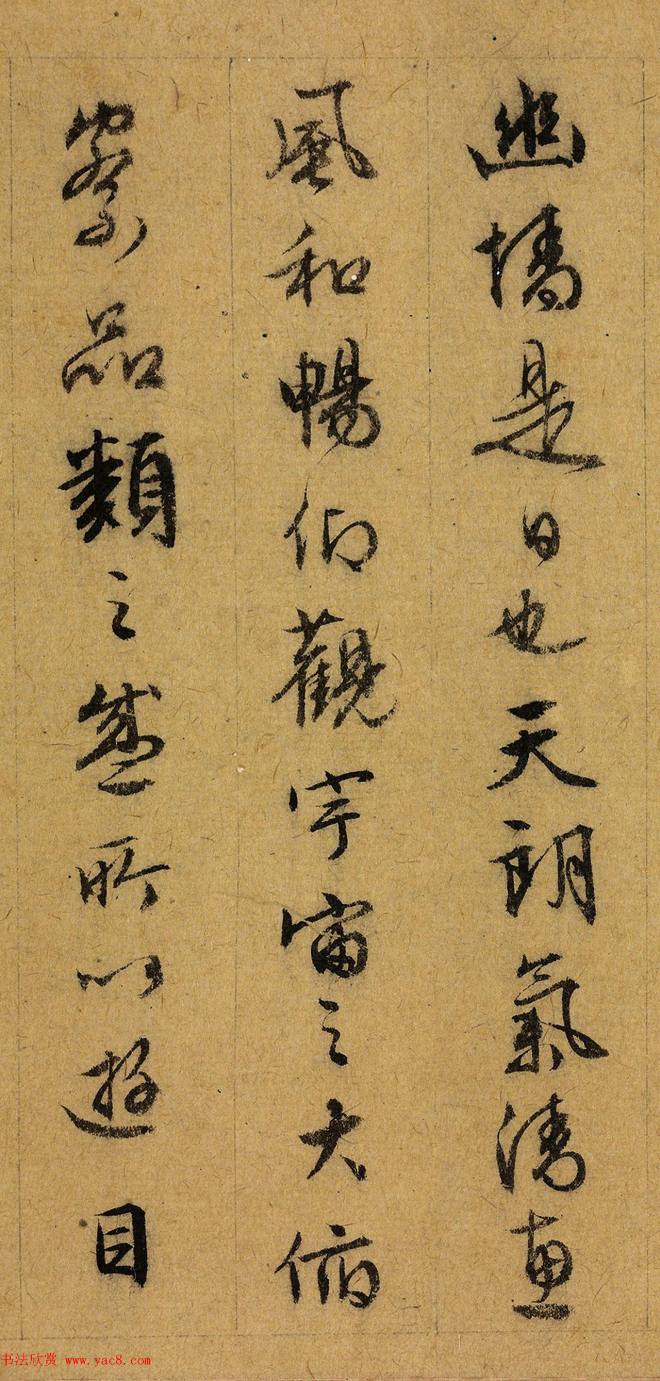 幽情是日也天朗氣清惠
風和暢仰觀宇宙之大俯
察品類之盛所以遊目
书法欣赏 www.yac8.com